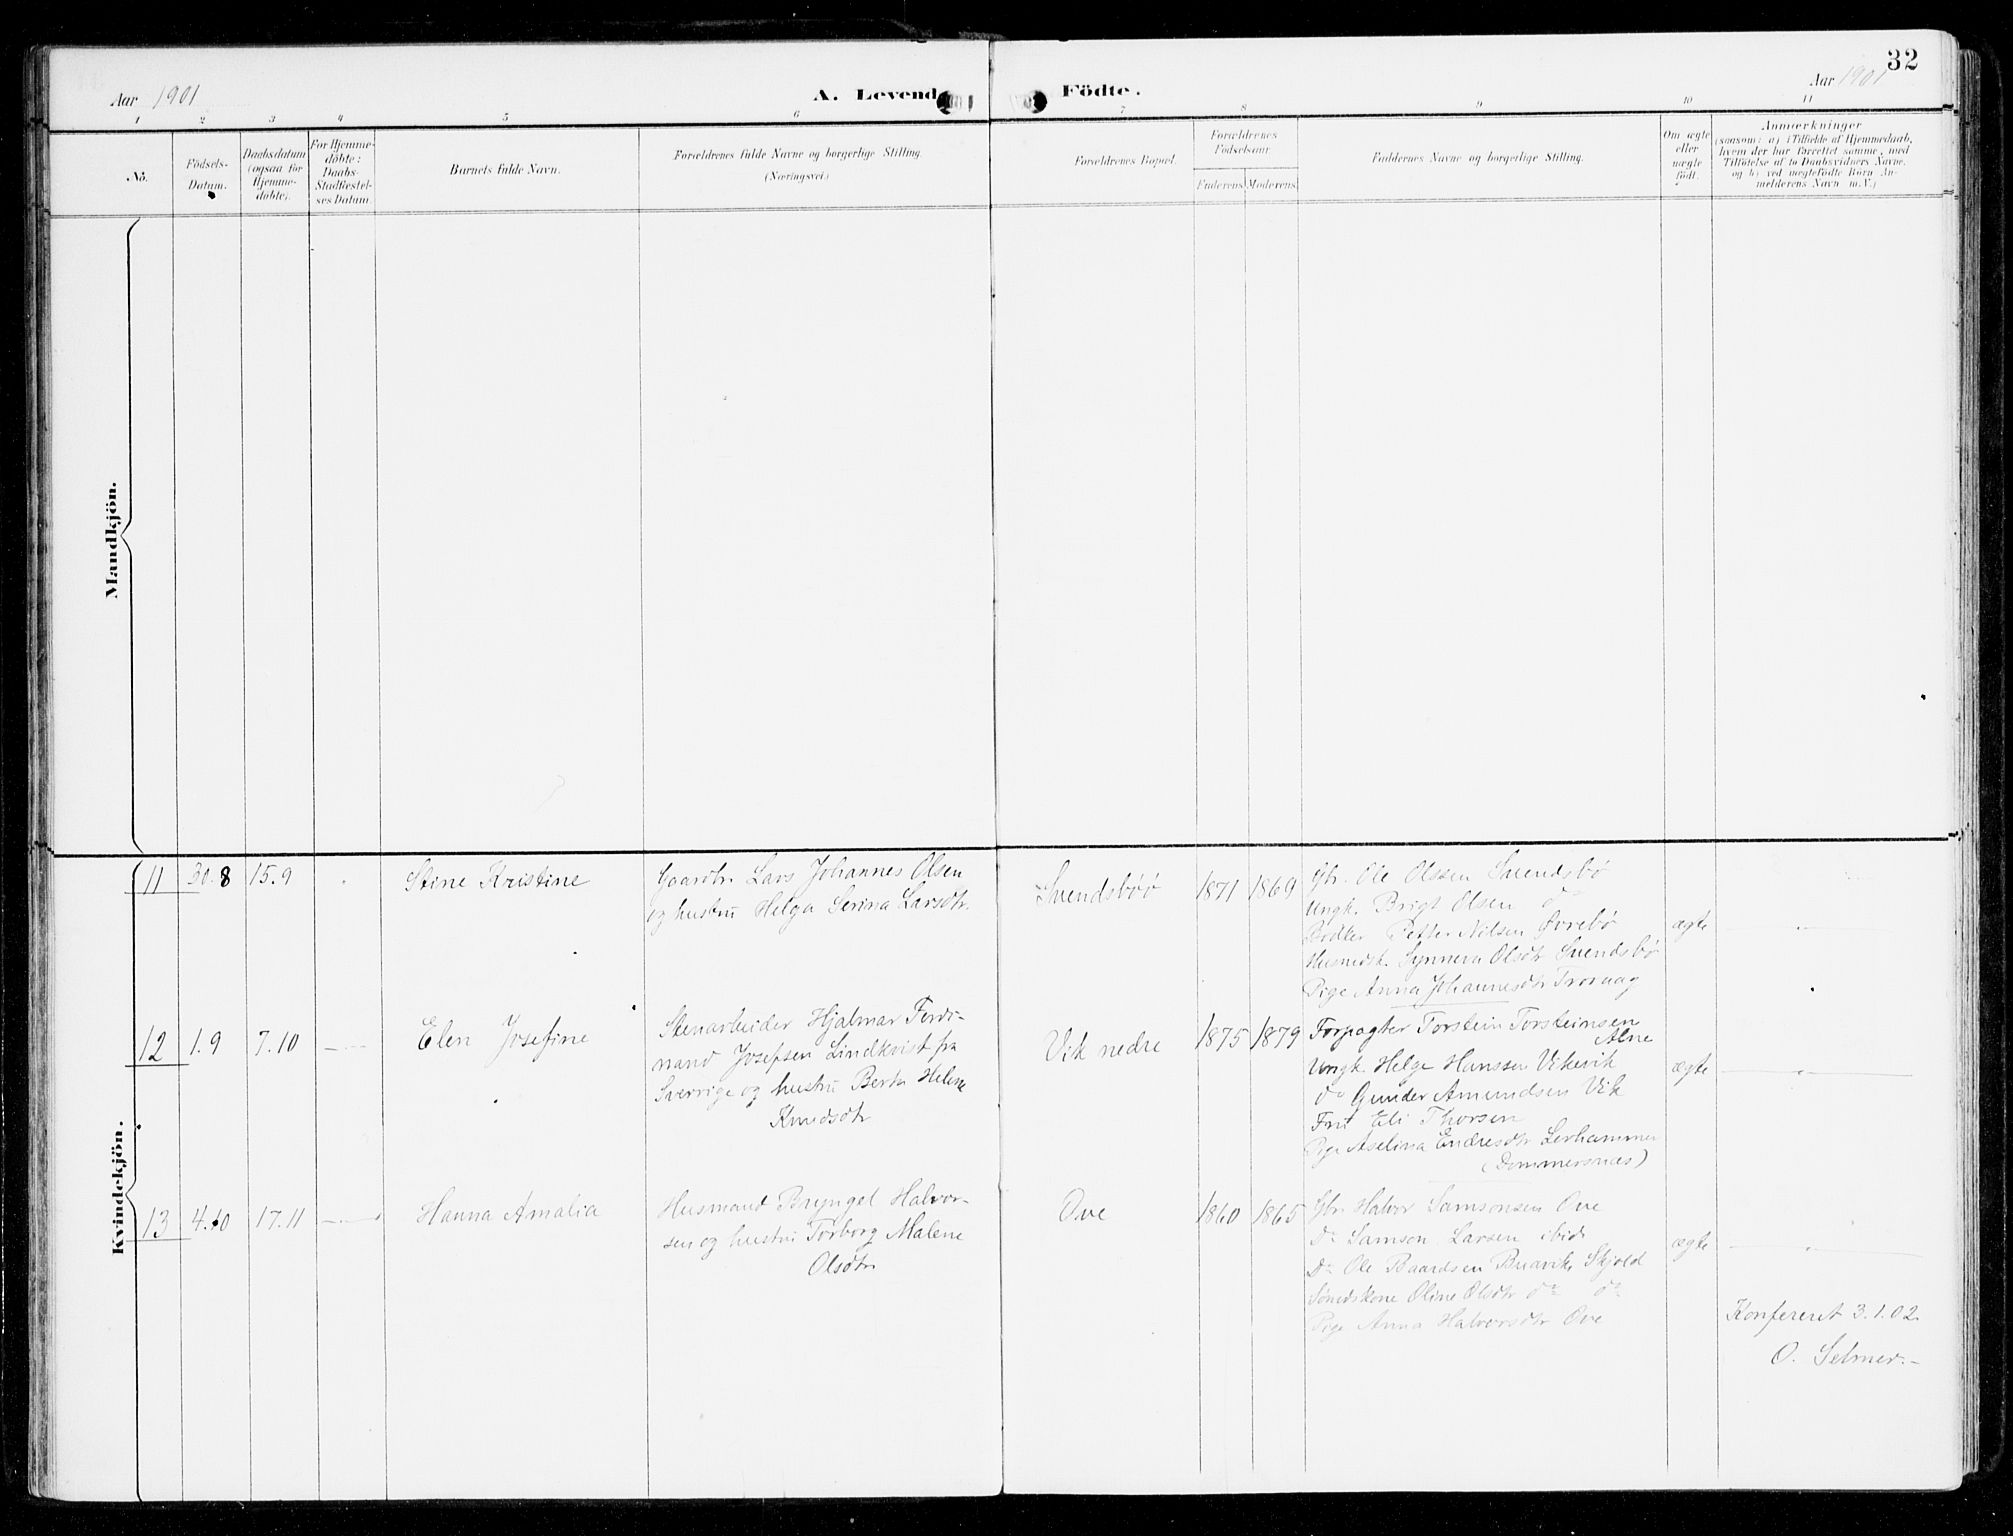 32
Aar 1901
A. Levend
Födte.
Aar 1901
1 2 3 4 5 6 7 8 9 10 11
No.
Födsels-
Datum.
Daabsdatum
(ogsaa for
Hjemme-
döbte).
For Hjemme-
döbte:
Daabs-
Stadfæstel-
ses Datum.
Barnets fulde Navn.
Forældrenes fulde Navne og borgerlige Stilling.
(Næringsvei.)
Forældrenes Bopæl.
Forældrenes
Födselsaar.
Faderens. Moderens.
Faddernes Navne og borgerlige Stilling.
Om ægte
eller
uægte
födt.
Anmærkninger
(saasom: a) i Tilfælde af Hjemmedaab,
hvem der har forrettet samme, med
Tilföielse af to Daabsvidners Navne.
og b) ved uægtefödte Börn An-
melderens Navn m.V.)
Mandkjön.
Kvindekjön.
11 30.8 15.9
Stine Kristine
Gaardbr. Lars Johannes Olsen
og hustru Helga Serina Larsdtr.
Svendsbøø
1871 1869
Gbr. Ole Olssen Svendsbø
Ungk. Brigt Olsen do
Bødker Petter Nilsen Øvrebø
Husmdsk. Synneva Olsdtr Svendsbø
Pige Anna Johannesdtr Trovaag
ægte
12 1.9 7.10
Elen Josefine
Stenarbeider Hjalmar Ferdi-
nand Josefsen Lindkvist fra
Sverrige og hustru Berta Helene
Knudsdtr
Vik nedre
1875 1879
Forpagter Torstein Torsteinsen
Alne
Ungk. Helge Hanssen Vikevik
do Gunder Amundsen Vik
Fru Eli Thorsen
Pige Aselina Endresdtr Lerhammer
(Dommersnæs)
ægte
13 4.10 17.11
Hanna Amalia
Husmand Bryngel Halvor-
sen og hustru Torborg Malene
Olsdtr.
Ove
1860 1865
Gbr. Halvor Samsonsen Ove
Do Samson Larsen ibid
Do Ole Baardsen Buavik Skjold
Smedskone Oline Olsdtr do do
Pige Anna Halvorsdtr Ove
ægte
Konfereret 3.1.02.
O. Selmer.